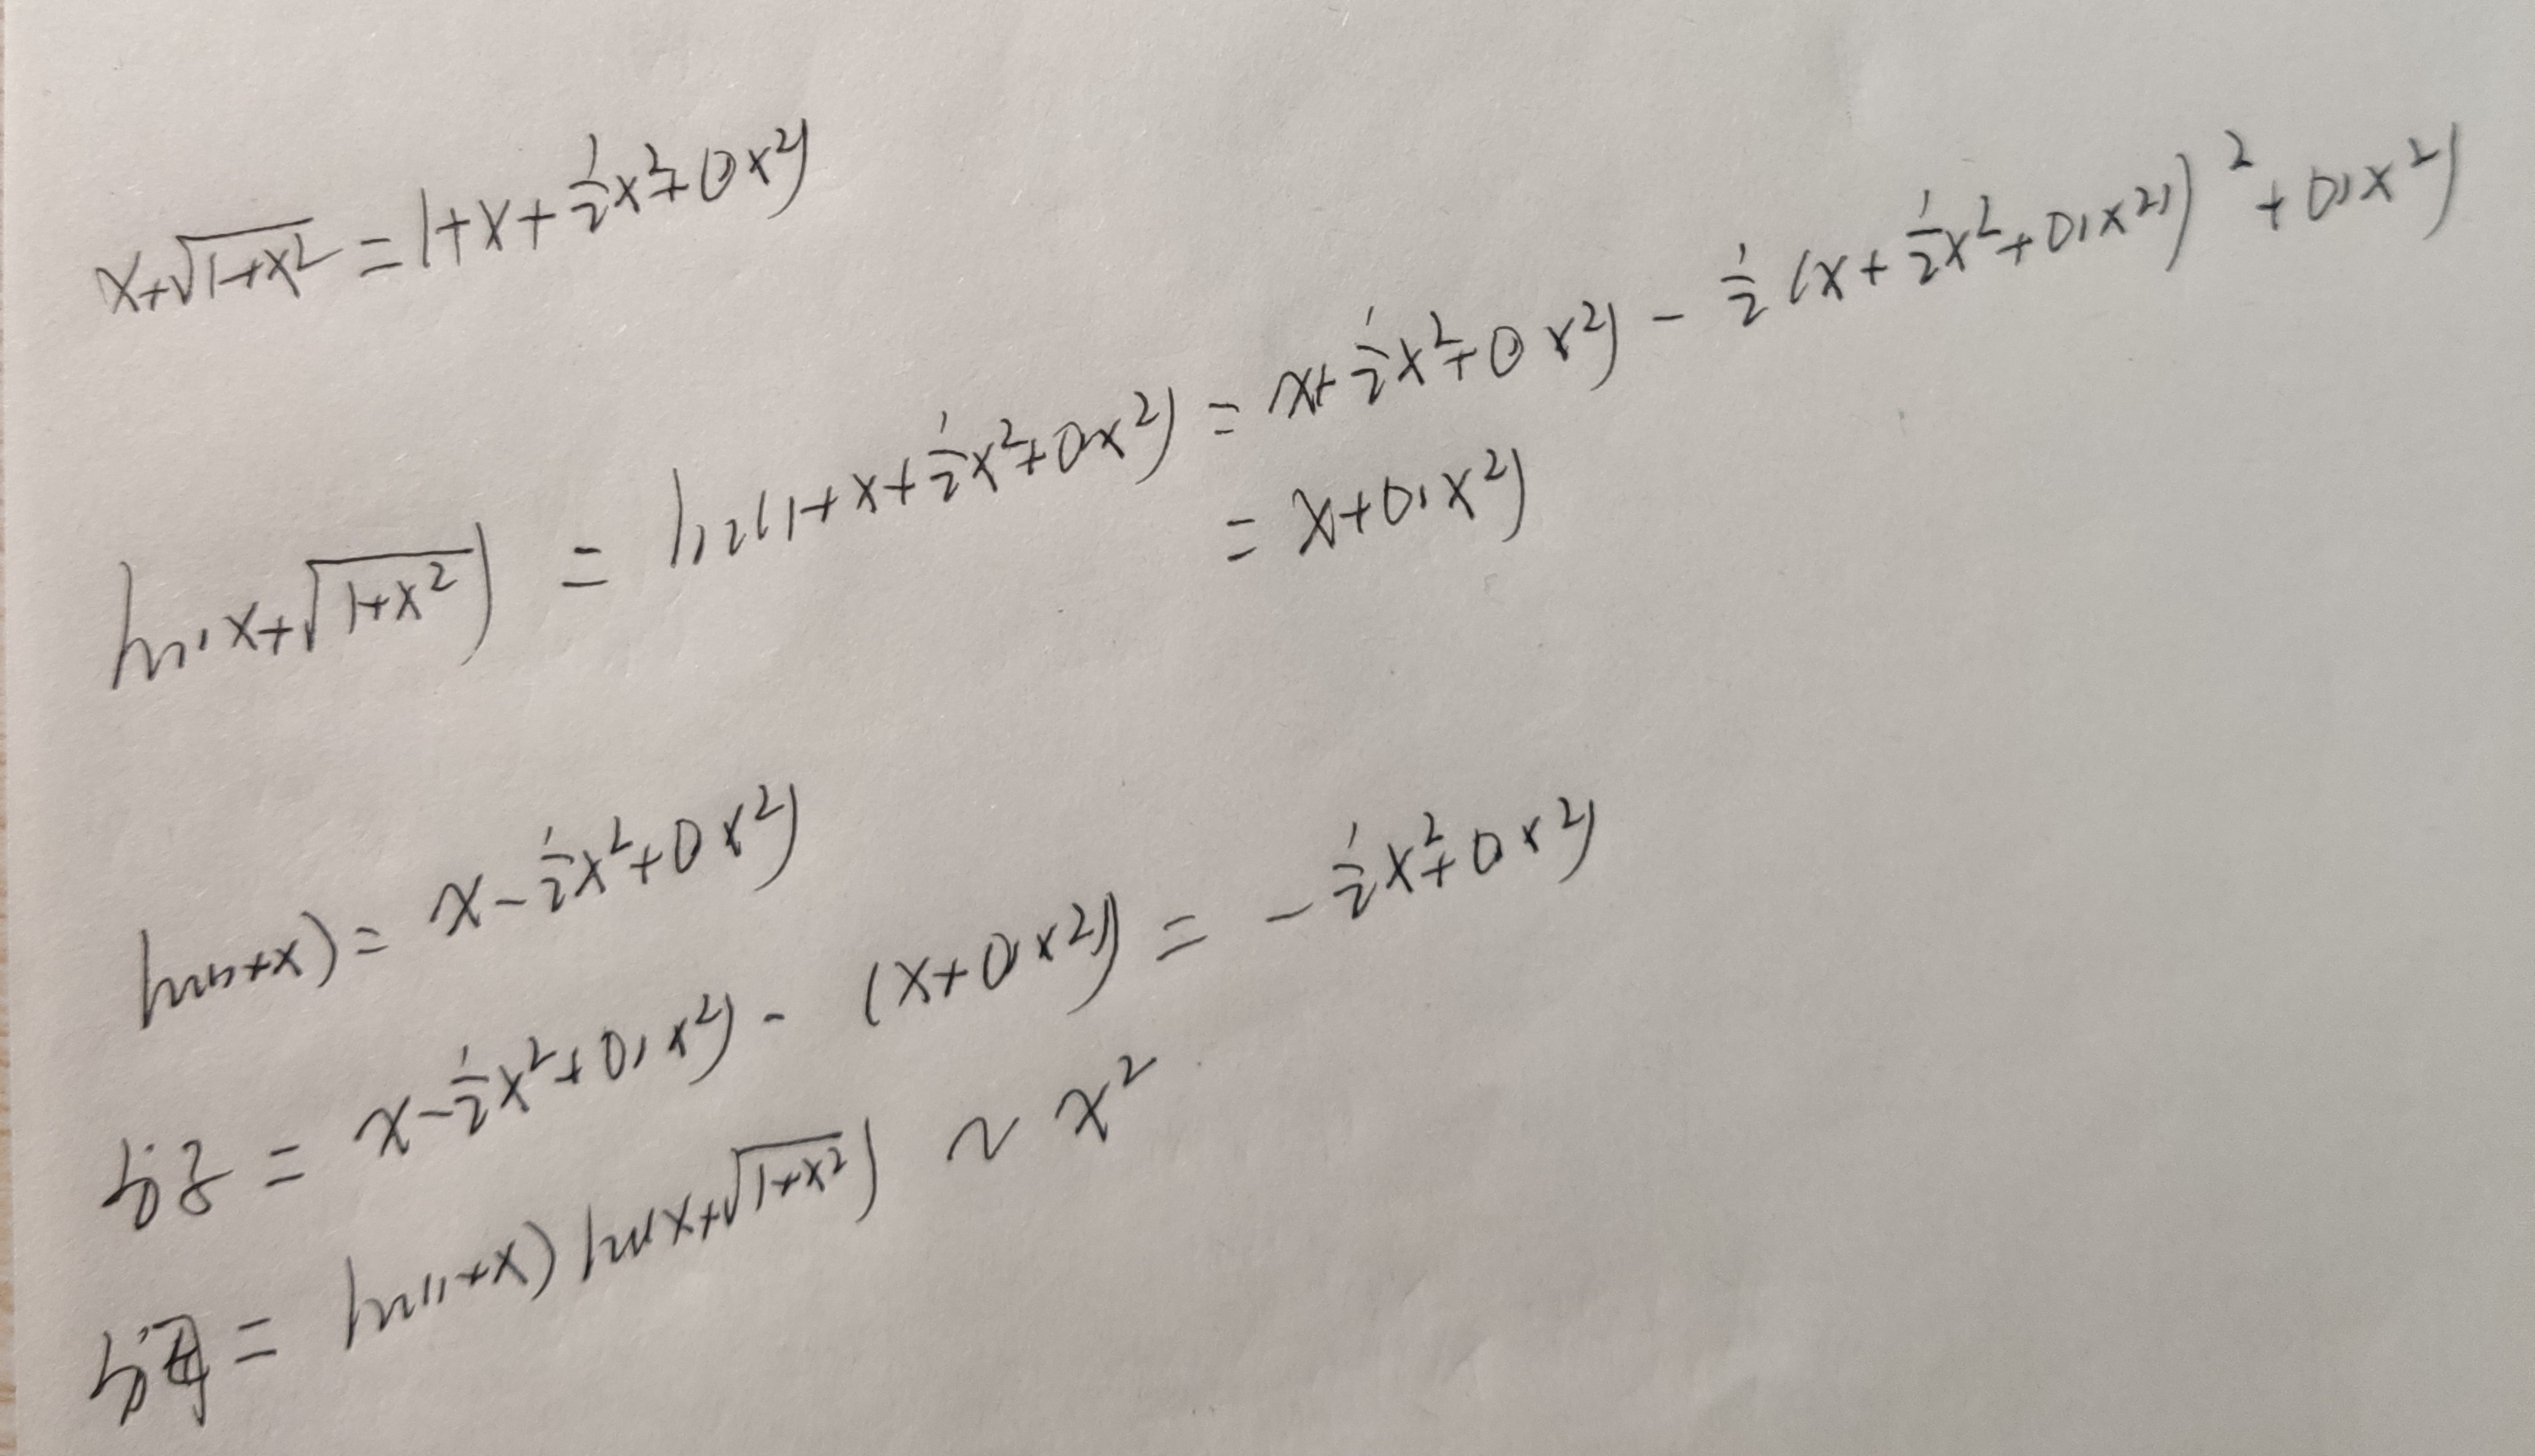 x+√(1+x²) = 1+x+½x²+o(x²)
ln(x+√(1+x²)) = ln(1+x+½x²+o(x²)) = x+½x²+o(x²) - ½(x+½x²+o(x²))²+o(x²)
= x+o(x²)
ln(1+x) = x-½x²+o(x²)
分子 = x-½x²+o(x²) - (x+o(x²)) = -½x²+o(x²)
分母 = ln(1+x) ln(x+√(1+x²)) ~ x²